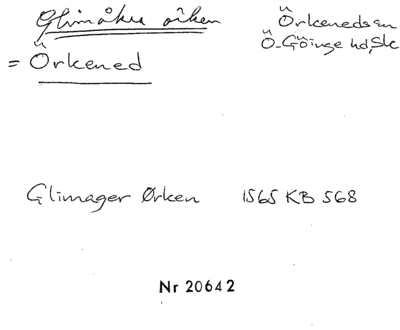 Glimåkra örken
= Örkened
Örkeneds sn
Ö. Göinge hd, Sk
Glimager Ørken 1565 KB 568
Nr 20642